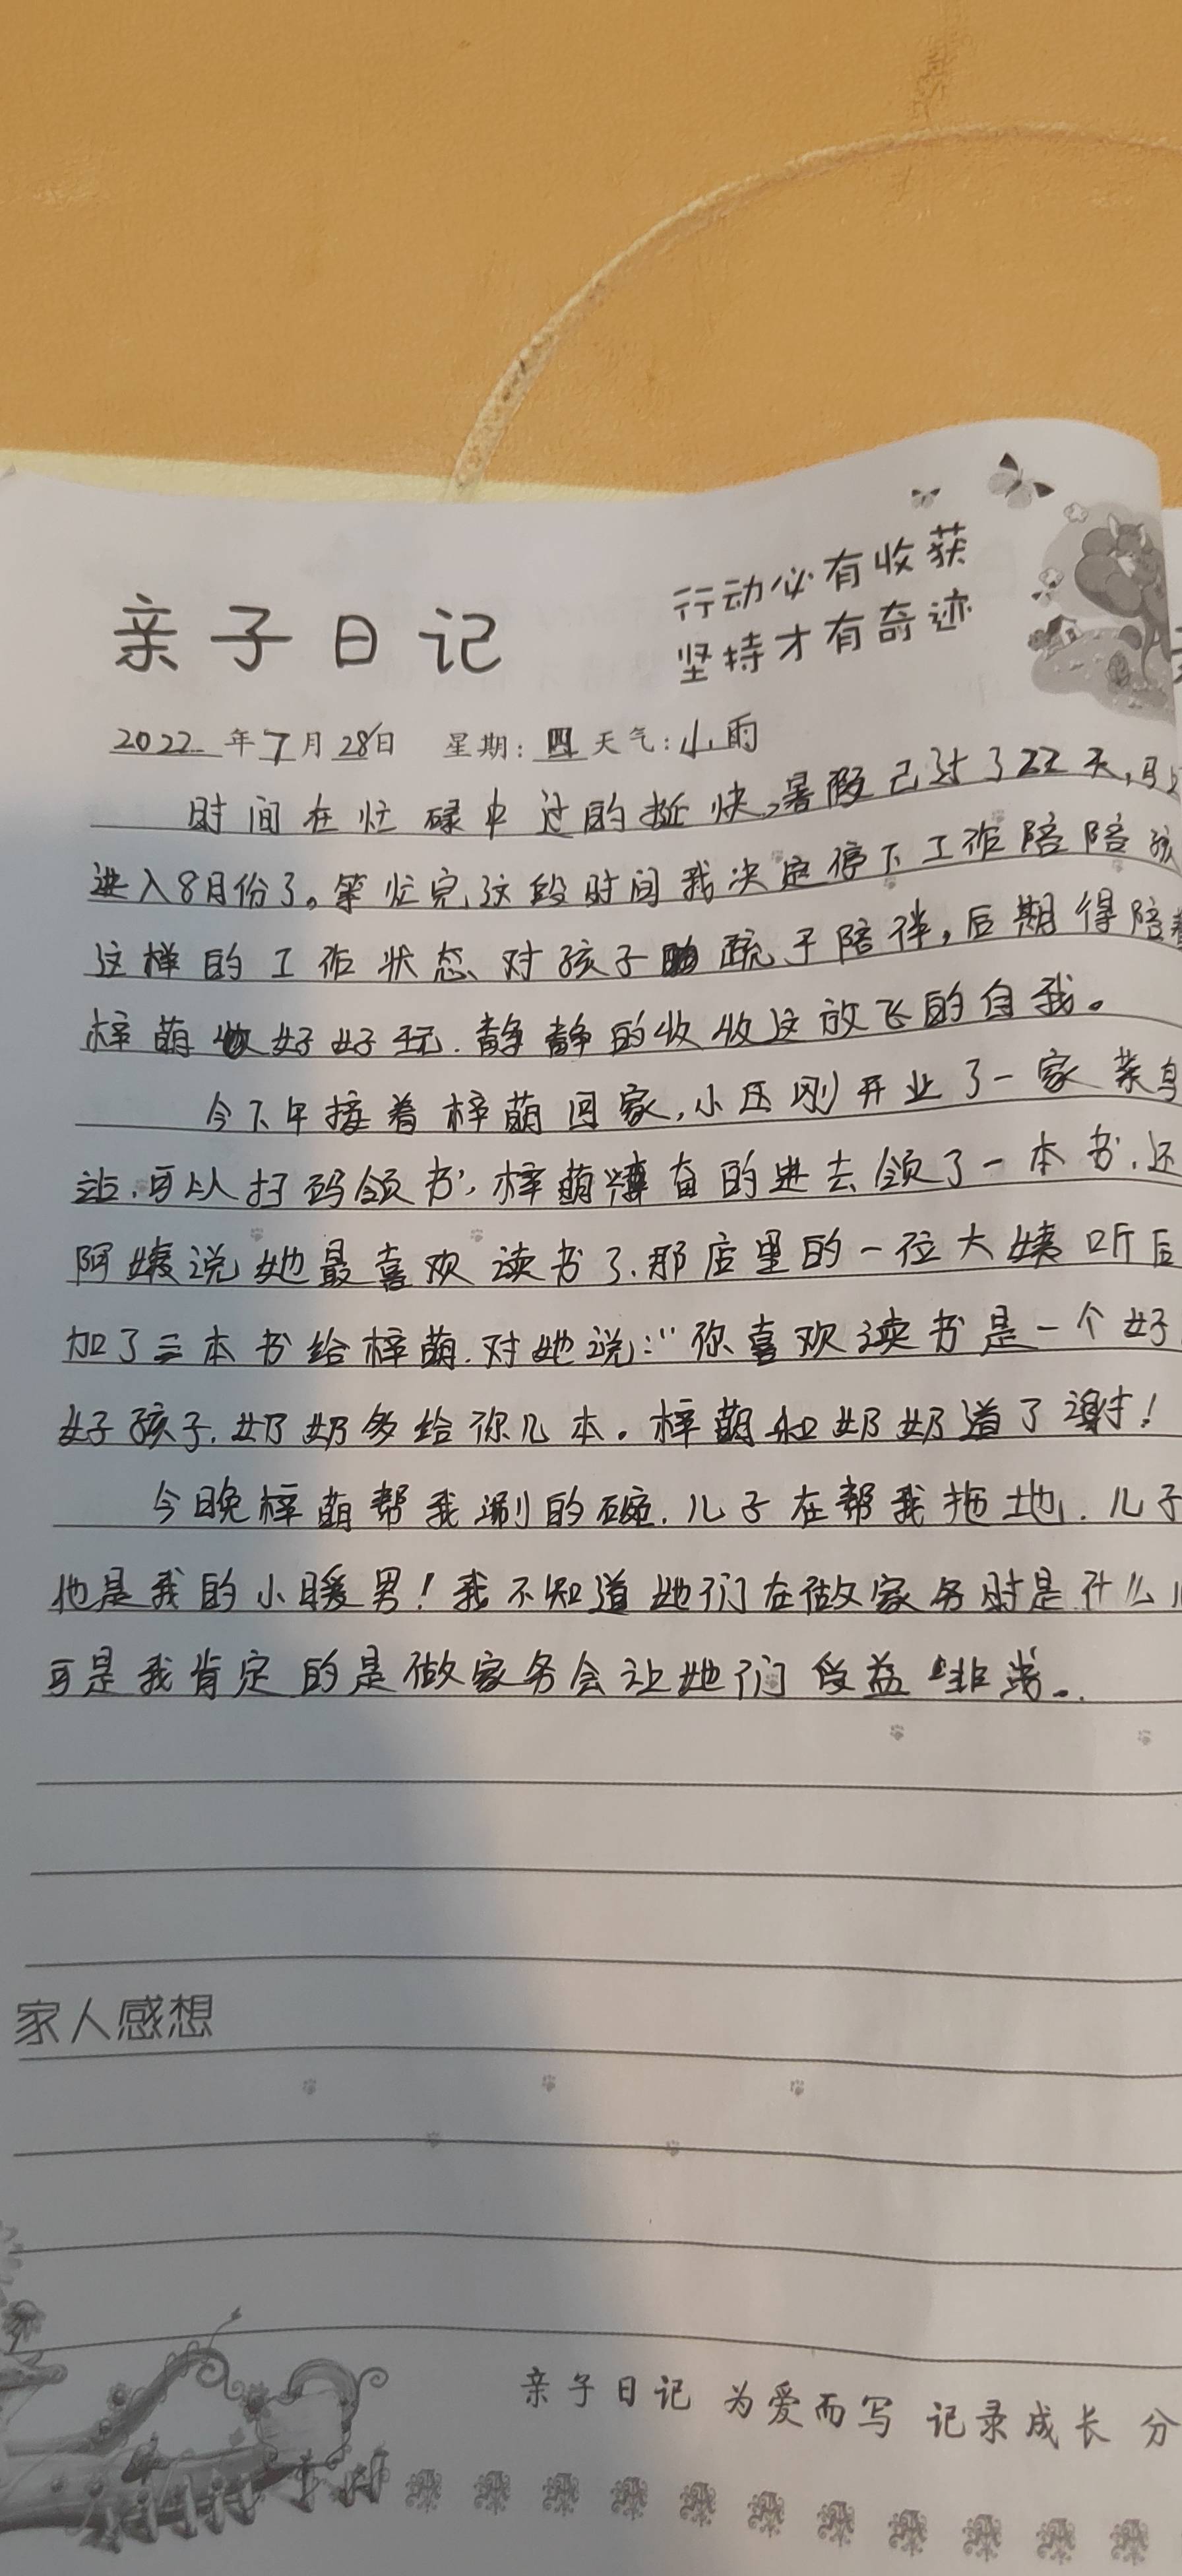 行动必有收获
亲子日记
坚持才有奇迹
2022年7月28日 星期:四 天气:小雨
时间在忙碌中过的挺快,暑假已过了22天,马
进入8月份了。等忙完这段时间我决定停下工作陪陪孩
这样的工作状态对孩子疏于陪伴,后期得陪着
梓萌好好玩.静静的收收这放飞的自我。
今下午接着梓萌回家,小区刚开业了一家菜鸟
站,可以扫码领书,梓萌奋的进去领了一本书,还
阿姨说她最喜欢读书了.那店里的一位大姨听后
加了三本书给梓萌.对她说:"你喜欢读书是一个好
好孩子.奶奶多给你几本。梓萌和奶奶道了谢!
今晚梓萌帮我涮的碗.儿子在帮我拖地.儿子
他是我的小暖男!我不知道她们在做家务时是什么
可是我肯定的是做家务会让她们受益非常。
家人感想
亲子日记 为爱而写 记录成长 分